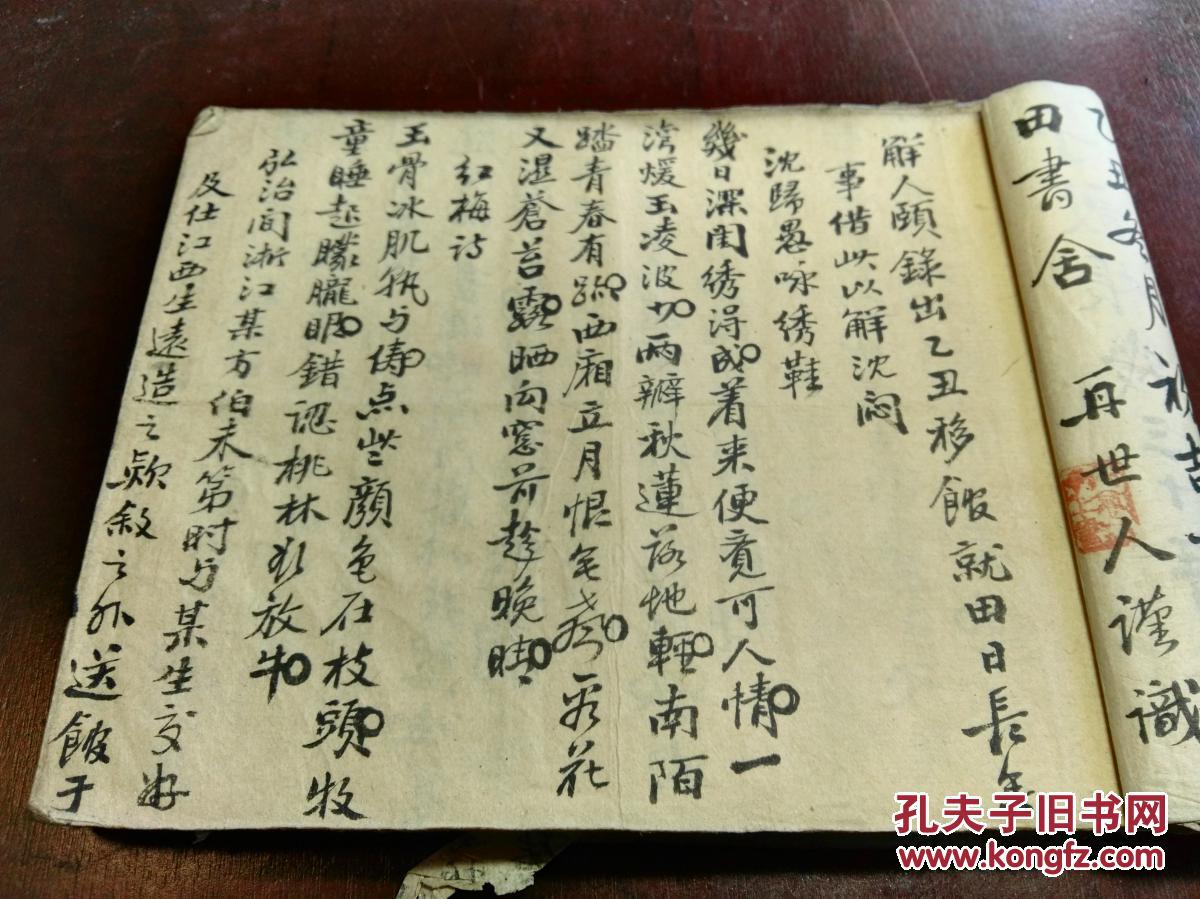 乙丑冬月
田書舍 再世人謹識
解人頤錄出乙丑移館就田日長無
事借此以解沈悶
沈歸愚咏绣鞋
幾日深闺绣得成着来便覚可人情一
湾煖玉凌波切两瓣秋蓮落地輕南陌
踏青春有跡西廂立月恨無声看花
又濕蒼苔露晒向窓前趂晚晴
红梅诗
玉骨冰肌孰与俦点些顔色在枝頭牧
童睡起朦朧眼錯認桃林欲放牛
弘治间浙江某方伯未第时与某生交好
及仕江西生遠造之款叙之外送館于
孔夫子旧书网
www.kongfz.com